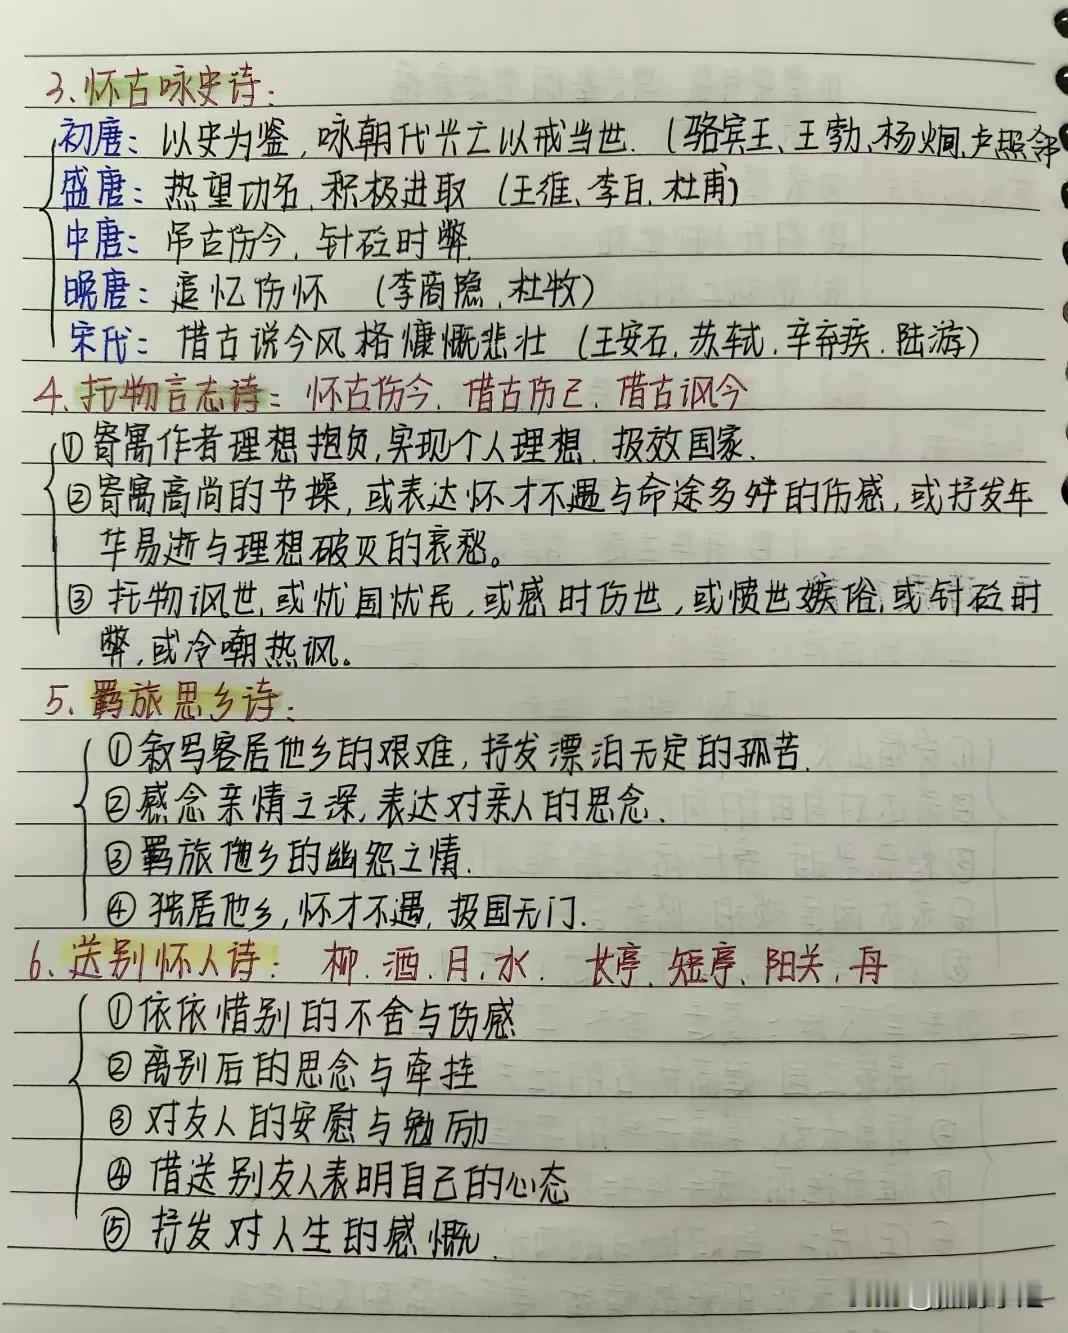 3、怀古咏史诗:
初唐: 以史为鉴,咏朝代兴亡以戒当世. (骆宾王、王勃、杨炯、卢照邻
盛唐: 热望功名、积极进取 (王维、李白、杜甫)
中唐: 吊古伤今,针砭时弊.
晚唐: 追忆伤怀 (李商隐、杜牧)
宋代: 借古说今风格慷慨悲壮 (王安石、苏轼、辛弃疾、陆游)
4、托物言志诗: 怀古伤今、借古伤己、借古讽今
①寄寓作者理想抱负,实现个人理想、报效国家.
②寄寓高尚的节操,或表达怀才不遇与命途多舛的伤感,或抒发年
华易逝与理想破灭的哀愁。
③托物讽世,或忧国忧民,或感时伤世,或愤世嫉俗,或针砭时
弊,或冷嘲热讽。
5、羁旅思乡诗:
①叙写客居他乡的艰难,抒发漂泊无定的孤苦.
②感念亲情之深,表达对亲人的思念.
③羁旅他乡的幽怨之情.
④独居他乡,怀才不遇,报国无门.
6、送别怀人诗: 柳、酒、月、水. 长亭、短亭、阳关、丹
①依依惜别的不舍与伤感
②离别后的思念与牵挂
③对友人的安慰与勉励
④借送别友人表明自己的心态
⑤抒发对人生的感慨.